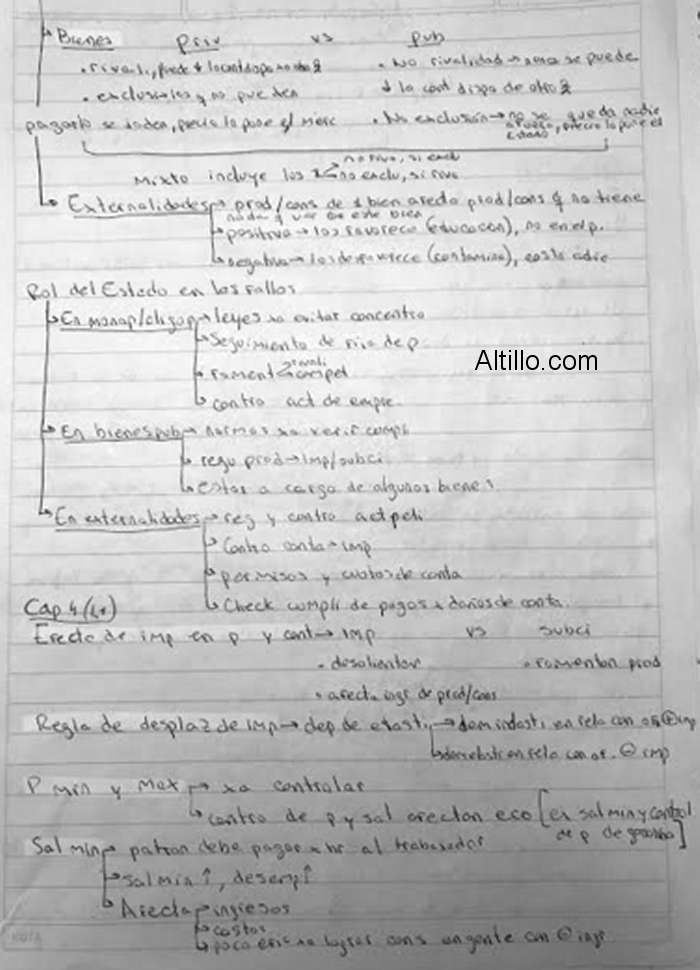 Bienes priv vs pub
• rivali, puede ↓ la cant dispo xa otro • No rivalidad → nunca se puede
• exclusi → los q no pueden ↓ la cant dispo de otro
pagarlo se joden, precio lo pone el merc • No exclusión → no se queda nadie
afuera, precio lo pone el estado
Mixto incluye los 2 no riva, si exclu
no exclu, si riva
Externalidades → prod/cons de 1 bien afecta prod/cons q no tiene
nada q ver con este bien
positiva → los favorece (educación), no en el p.
negativa → los desfavorece (contamina), costo adic
Rol del Estado en los fallos
En monop/oligop → leyes xa evitar concentra
Seguimiento de fija de p.
foment rivali
compet
contro act de empre.
En bienes pub → normas xa verif cumpli
regu prod → imp/subci
estar a cargo de algunos bienes
En externalidades → reg y contro act peli
Contro conta → imp
permisos y cuotas de conta
Check cumpli de pagos x daños de conta.
Cap 4 (L1)
Efecto de imp en p y cant → imp vs subci
• desalientan • fomentan prod
• afecta ingr de prod/cons
Regla de desplaz de imp → dep de elasti → dem inelasti en rela con of. ⊕ imp
dem elasti en rela con of. ⊖ imp
P min y Max → xa controlar
contro de p y sal afectan eco [ej sal min y control
de p de]
Sal min → patron debe pagar x hr al trabajador
sal min ↑, desemp ↑
Afecta → ingresos
costos
poco efic xa lograr cons en gente con ⊖ ingr
Altillo.com